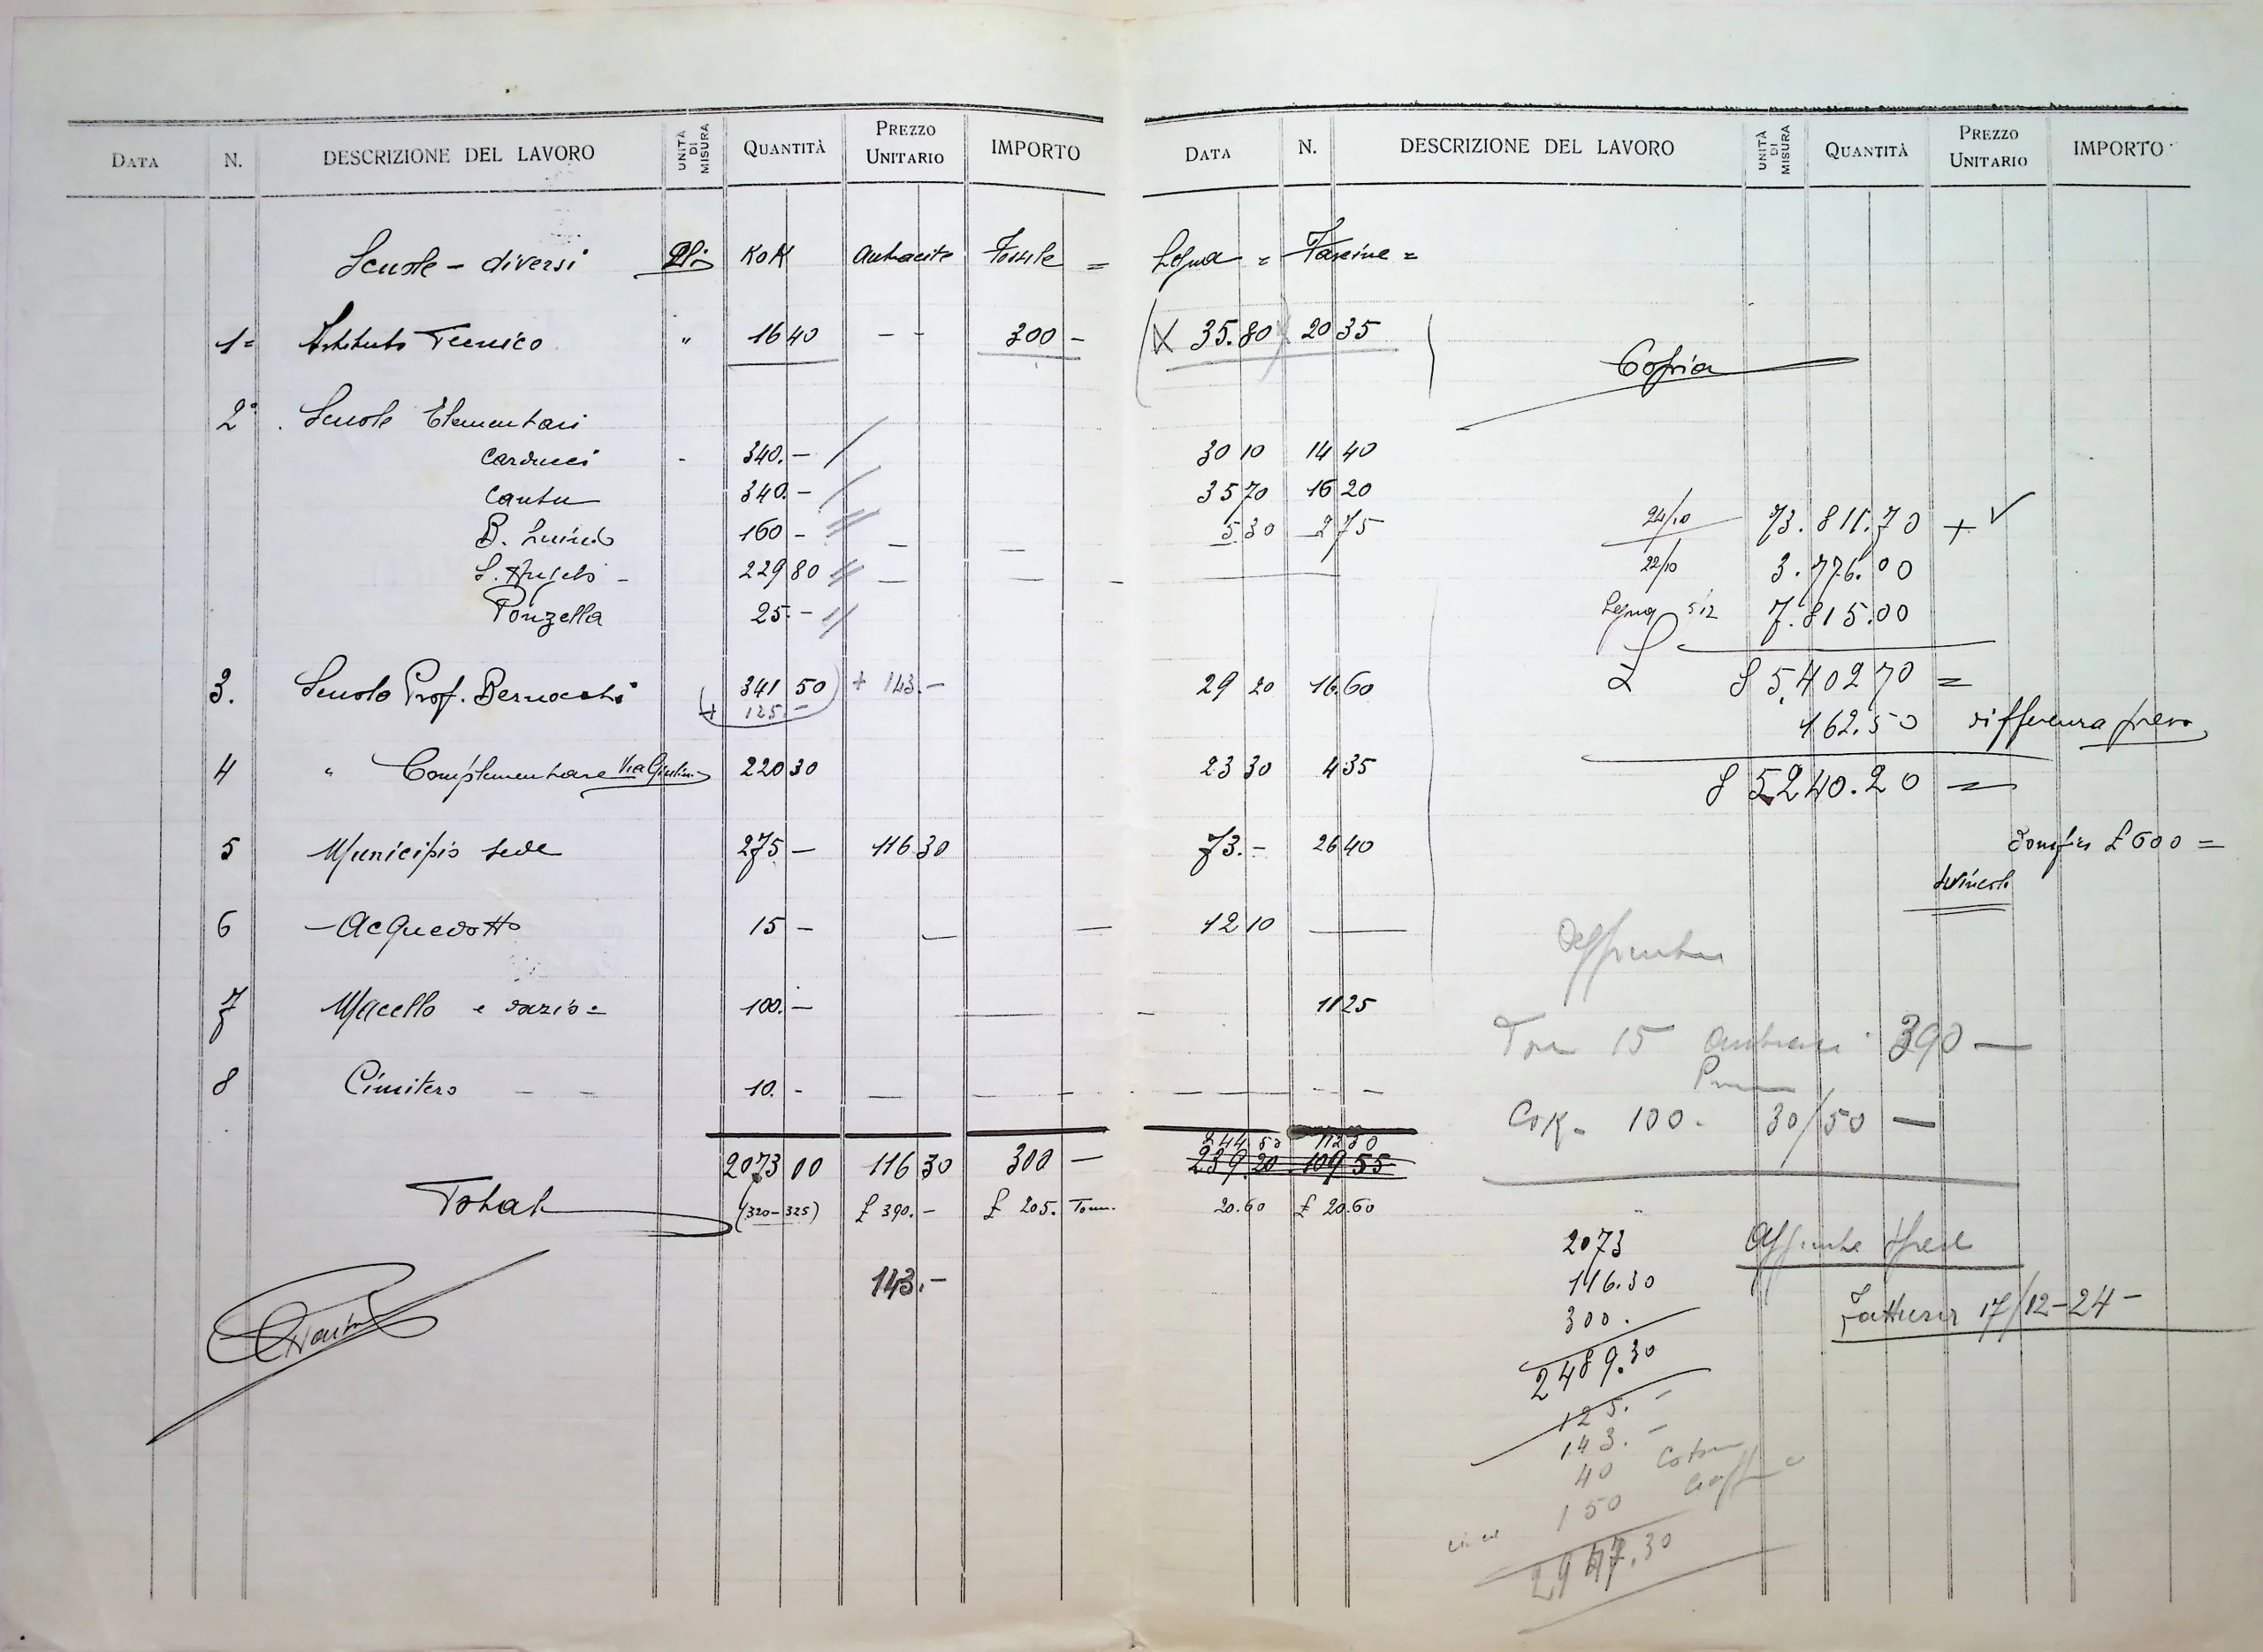 DATA N. DESCRIZIONE DEL LAVORO UNITÀ DI MISURA QUANTITÀ PREZZO UNITARIO IMPORTO
DATA N. DESCRIZIONE DEL LAVORO UNITÀ DI MISURA QUANTITÀ PREZZO UNITARIO IMPORTO
Scuole - diversi Qli KoK Antracite Fossile = Legna = Fascine =
1= Istituto Tecnico " 16 40 - - 300 - 35.80 20 35
Copia
2° Scuole Elementari
Carducci 340.- 30 10 14 40
Cantu 340.- 35 70 16 20
B. Luini 160 - 5 30 2 75
S. Angelo - 229 80
Ponzella 25.-
24/10 73.811.70 +
22/10 3.776.00
Legna 5/12 7.815.00
£ 85,402 70 =
162.50 differenza
85240.20 =
3. Scuola Prof. Bernocchi 341 50 + 143.- 29 20 16.60
+ 125.-
4 " Complementare Via 220 30 23 30 4 35
5 Municipio sede 275 - 116 30 73.- 26 40
£ 600 =
svincolo
6 - Acquedotto 15 - 12 10
7 Macello e dazio = 100.- 11 25
8 Cimitero - - 10.-
15 390 -
CoK - 100. 30/50 -
244 50 112 30
2073 00 116 30 300 - 239.20 109 55
Total (320-325) £ 390.- £ 205. Tonn. 20.60 £ 20.60
143.-
2073
116.30
300.
2489.30
125.-
143.-
40
150
2947.30
17/12-24-